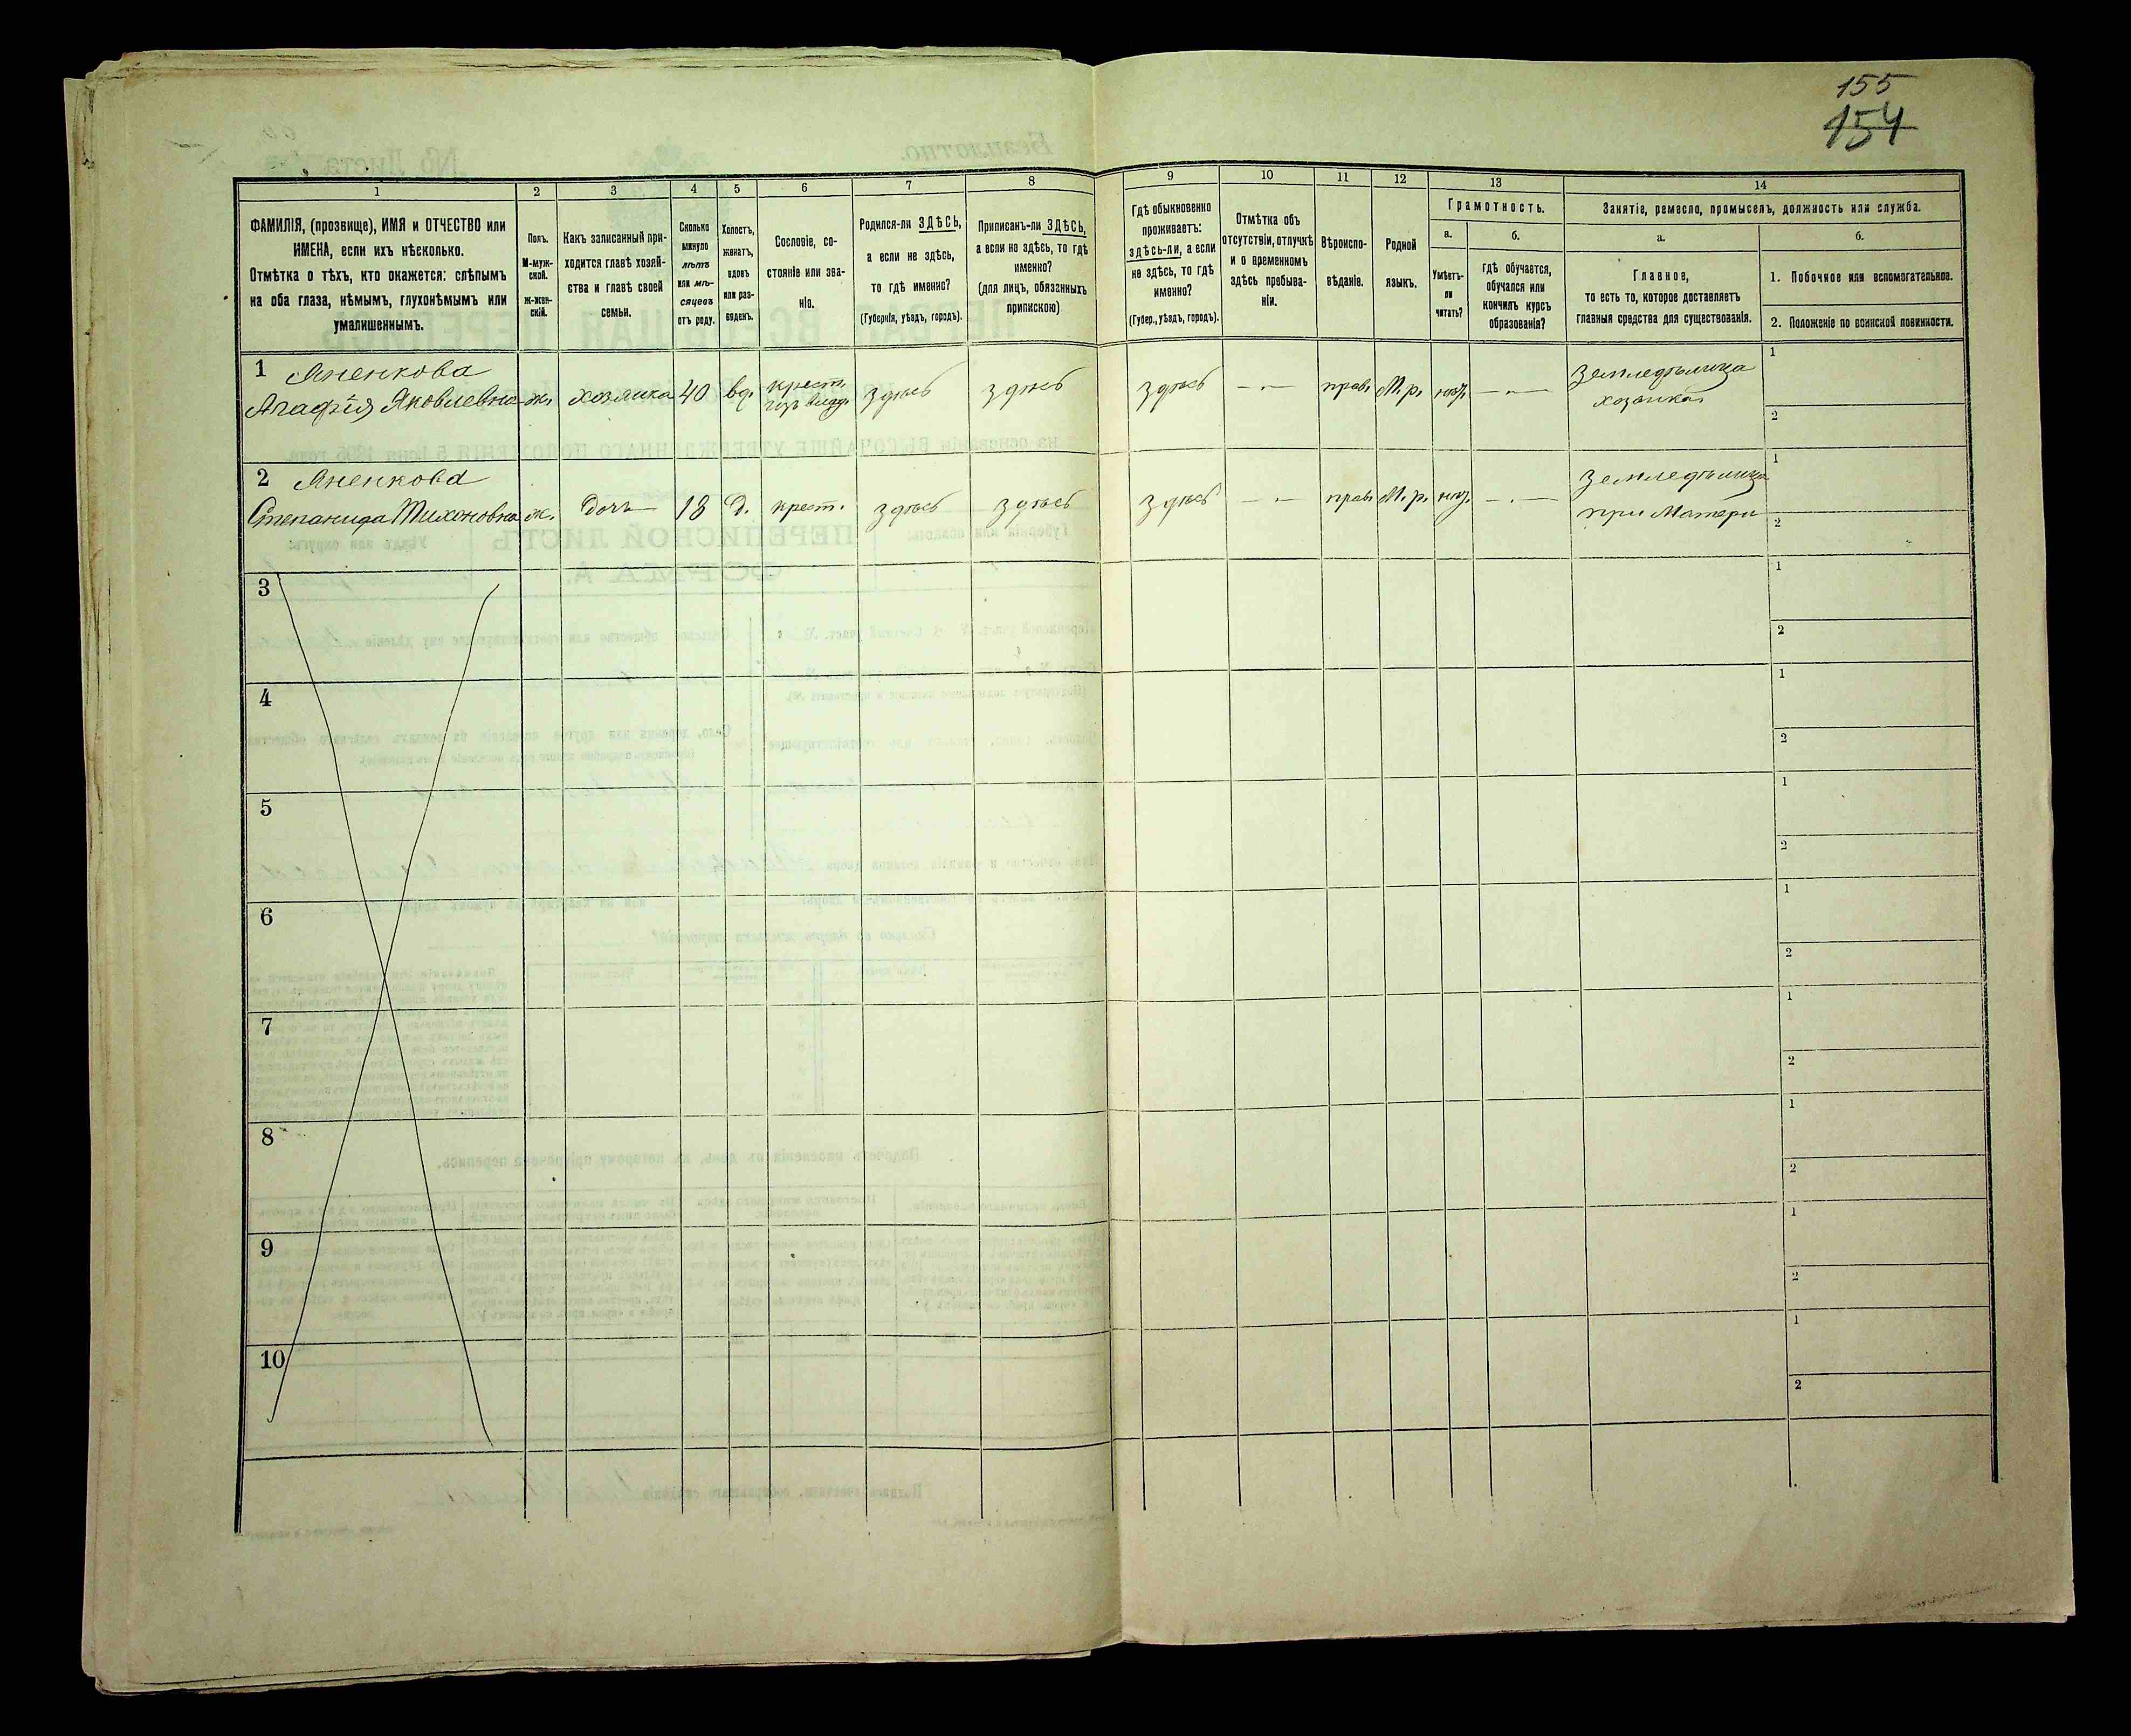 155
154
1
2
3
4
5
6
7
8
9
10
11
12
13
14
ФАМИЛІЯ, (прозвище), ИМЯ и ОТЧЕСТВО или
ИМЕНА, если ихъ нѣсколько.
Отмѣтка о тѣхъ, кто окажется: слѣпымъ
на оба глаза, нѣмымъ, глухонѣмымъ или
умалишеннымъ.
Полъ.
М-муж-
ской.
ж-жен-
скій.
Какъ записанный при-
ходится главѣ хозяй-
ства и главѣ своей
семьи.
Сколько
минуло
лѣтъ
или мѣ-
сяцевъ
отъ роду.
Холостъ,
женатъ,
вдовъ
или раз-
веденъ.
Сословіе, со-
стояніе или зва-
ніе.
Родился-ли ЗДѢСЬ,
а если не здѣсь,
то гдѣ именно?
(Губернія, уѣздъ, городъ).
Приписанъ-ли ЗДѢСЬ,
а если не здѣсь, то гдѣ
именно?
(для лицъ, обязанныхъ
припискою)
Гдѣ обыкновенно
проживаетъ:
здѣсь-ли, а если
не здѣсь, то гдѣ
именно?
(Губер., уѣздъ, городъ).
Отмѣтка объ
отсутствіи, отлучкѣ
и о временномъ
здѣсь пребыва-
ніи.
Вѣроиспо-
вѣданіе.
Родной
языкъ.
Грамотность.
а.
Умѣетъ-
ли
читать?
б.
Гдѣ обучается,
обучался или
кончилъ курсъ
образованія?
Занятіе, ремесло, промыселъ, должность или служба.
а.
Главное,
то есть то, которое доставляетъ
главныя средства для существованія.
б.
1. Побочное или вспомогательное.
2. Положеніе по воинской повинности.
1 Яненкова
Агафія Яковлевна
ж.
хозяйка
40
вд.
крест.
здѣсь
здѣсь
здѣсь
— „ —
прав.
М.р.
— „ —
Земледѣлица
хозяйка
1
2
2 Яненкова
Степанида Тихоновна
ж.
Дочь
13
д.
крест.
здѣсь
здѣсь
здѣсь
— „ —
прав.
М.р.
— „ —
Земледѣлица
при Матери
1
2
3
1
2
4
1
2
5
1
2
6
1
2
7
1
2
8
1
2
9
1
2
10
1
2